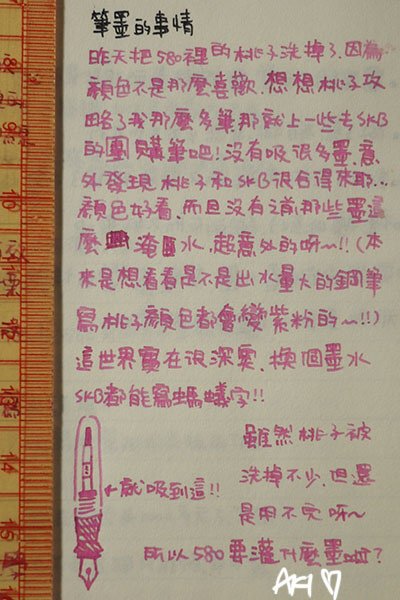 筆墨的事情
昨天把580裡的桃子洗掉了,因為
顏色不是那麼喜歡.想想桃子攻
略了我那麼多筆那就上一些去SKB
的團購筆吧!沒有吸很多墨.意
外發現桃子和SKB很合得來耶...
顏色好看.而且沒有之前那些墨這
麼 淹 水.超意外的呀~!!(本
來是想看看是不是出水量大的鋼筆
寫桃子顏色都會變紫粉的~!!)
這世界實在很深奧.換個墨水
SKB都能寫螞蟻字!!
←就吸到這!!
雖然桃子被
洗掉不少.但還
是用不完呀~
所以580要灌什麼墨呢?
AKI♡
14
15